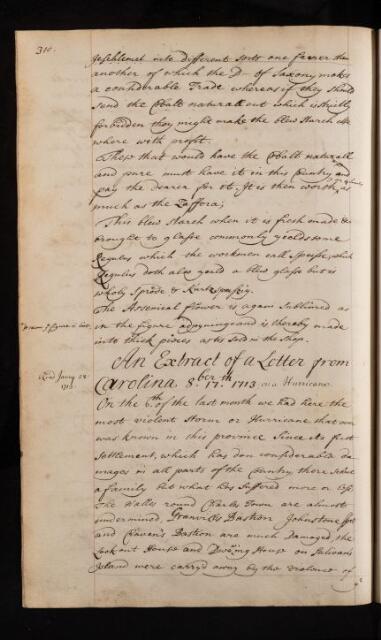 310.
into different sorts one fairer then
another of which the D– of Saxony makes
a considerable Trade whereas if they should
send the Cobalt naturall out which is strictly
forbidden they might make the blew Starch else
where with profit.
Those that would have the Cobalt naturall
and pure must have it in this Country and
pay the dearer for it. It is then worth as
much as the Zaffora;
This blew Starch when it is fresh made &
brought to glasse commonly yeilds some
Regulus which the workmen call Speisse, which
Regulus doth also yeild a blew glasse but is
wholy Sprode &
The Arsenical flower is again Sublimed as
in the figure adjoyning and is thereby made
into thick pieces as tis sold in the shop.
An Extract of a Letter from
Carolina 8.ber 17.th 1713 on a Hurricane
Read
1713.
On the 6.th of the last month we had here the
most violent Storm or Hurricane that ever
was known in this province Since its first
Settlement, which has don considerable da-
mages in all parts of the Country there scarce
a family but what has Suffered more or less
The Walls round Charles Town are almost
undermined, Granvills Bastion Johnstone fort
and Cravens Bastion are much Damaged, the
Look out House and Dwelling House on Sulivans
Island were carryd away by the violence of